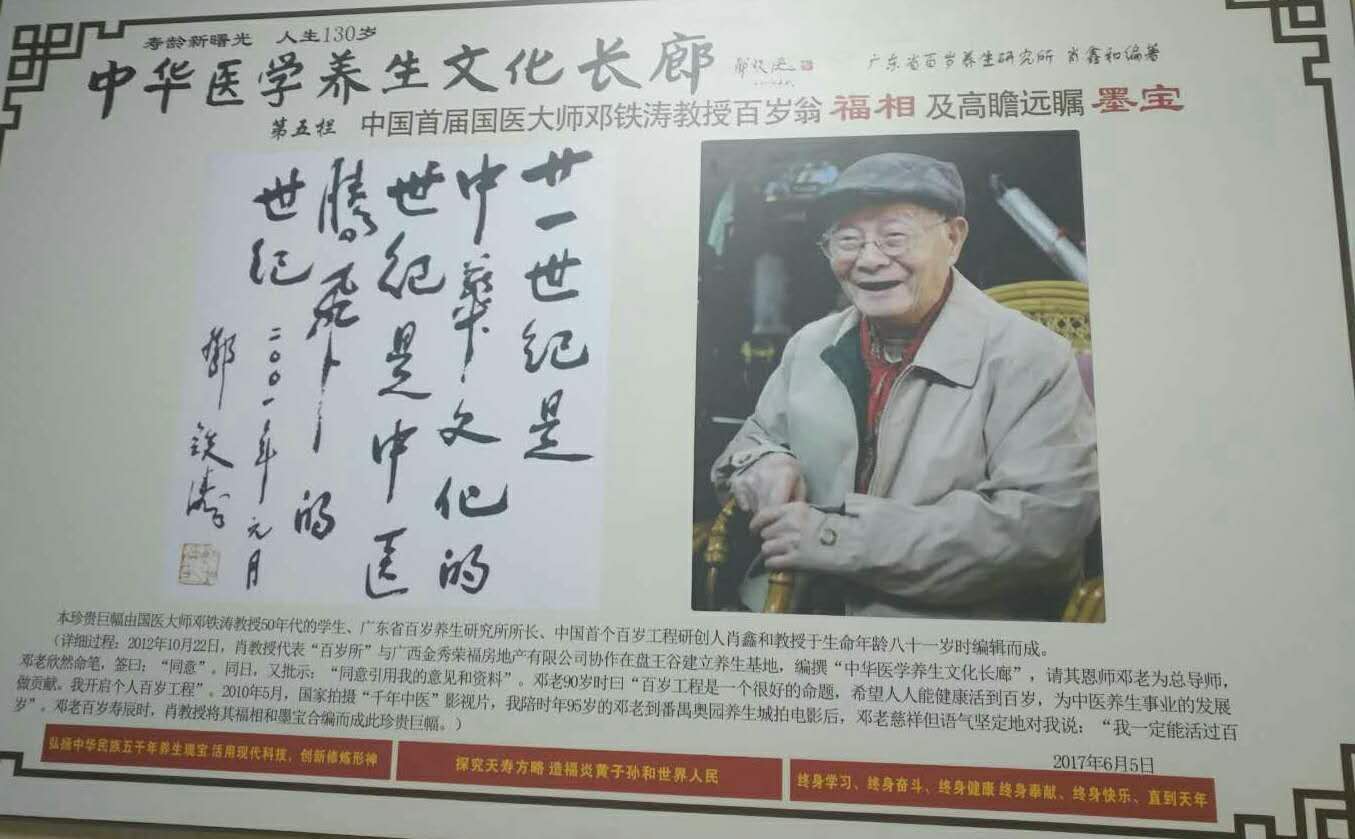 寿龄新曙光　人生130岁
中华医学养生文化长廊
广东省百岁养生研究所 肖鑫和编著
第五栏　中国首届国医大师邓铁涛教授百岁翁 福相 及高瞻远瞩 墨宝
廿一世纪是
中华文化的
世纪是中医
腾飞的
世纪
二〇〇一年元月
邓铁涛
本珍贵巨幅由国医大师邓铁涛教授50年代的学生、广东省百岁养生研究所所长、中国首个百岁工程研创人肖鑫和教授于生命年龄八十一岁时编辑而成。
(详细过程：2012年10月22日，肖教授代表“百岁所”与广西金秀荣福房地产有限公司协作在盘王谷建立养生基地，编撰“中华医学养生文化长廊”，请其恩师邓老为总导师，
邓老欣然命笔，签曰：“同意”。同日，又批示：“同意引用我的意见和资料”。邓老90岁时曰“百岁工程是一个很好的命题，希望人人能健康活到百岁，为中医养生事业的发展
做贡献。我开启个人百岁工程”。2010年5月，国家拍摄“千年中医”影视片，我陪时年95岁的邓老到番禺奥园养生城拍电影后，邓老慈祥但语气坚定地对我说：“我一定能活过百
岁”。邓老百岁寿辰时，肖教授将其福相和墨宝合编而成此珍贵巨幅。)
2017年6月5日
弘扬中华民族五千年养生瑰宝 活用现代科技，创新修炼形神
探究天寿方略 造福炎黄子孙和世界人民
终身学习、终身奋斗、终身健康 终身奉献、终身快乐、直到天年